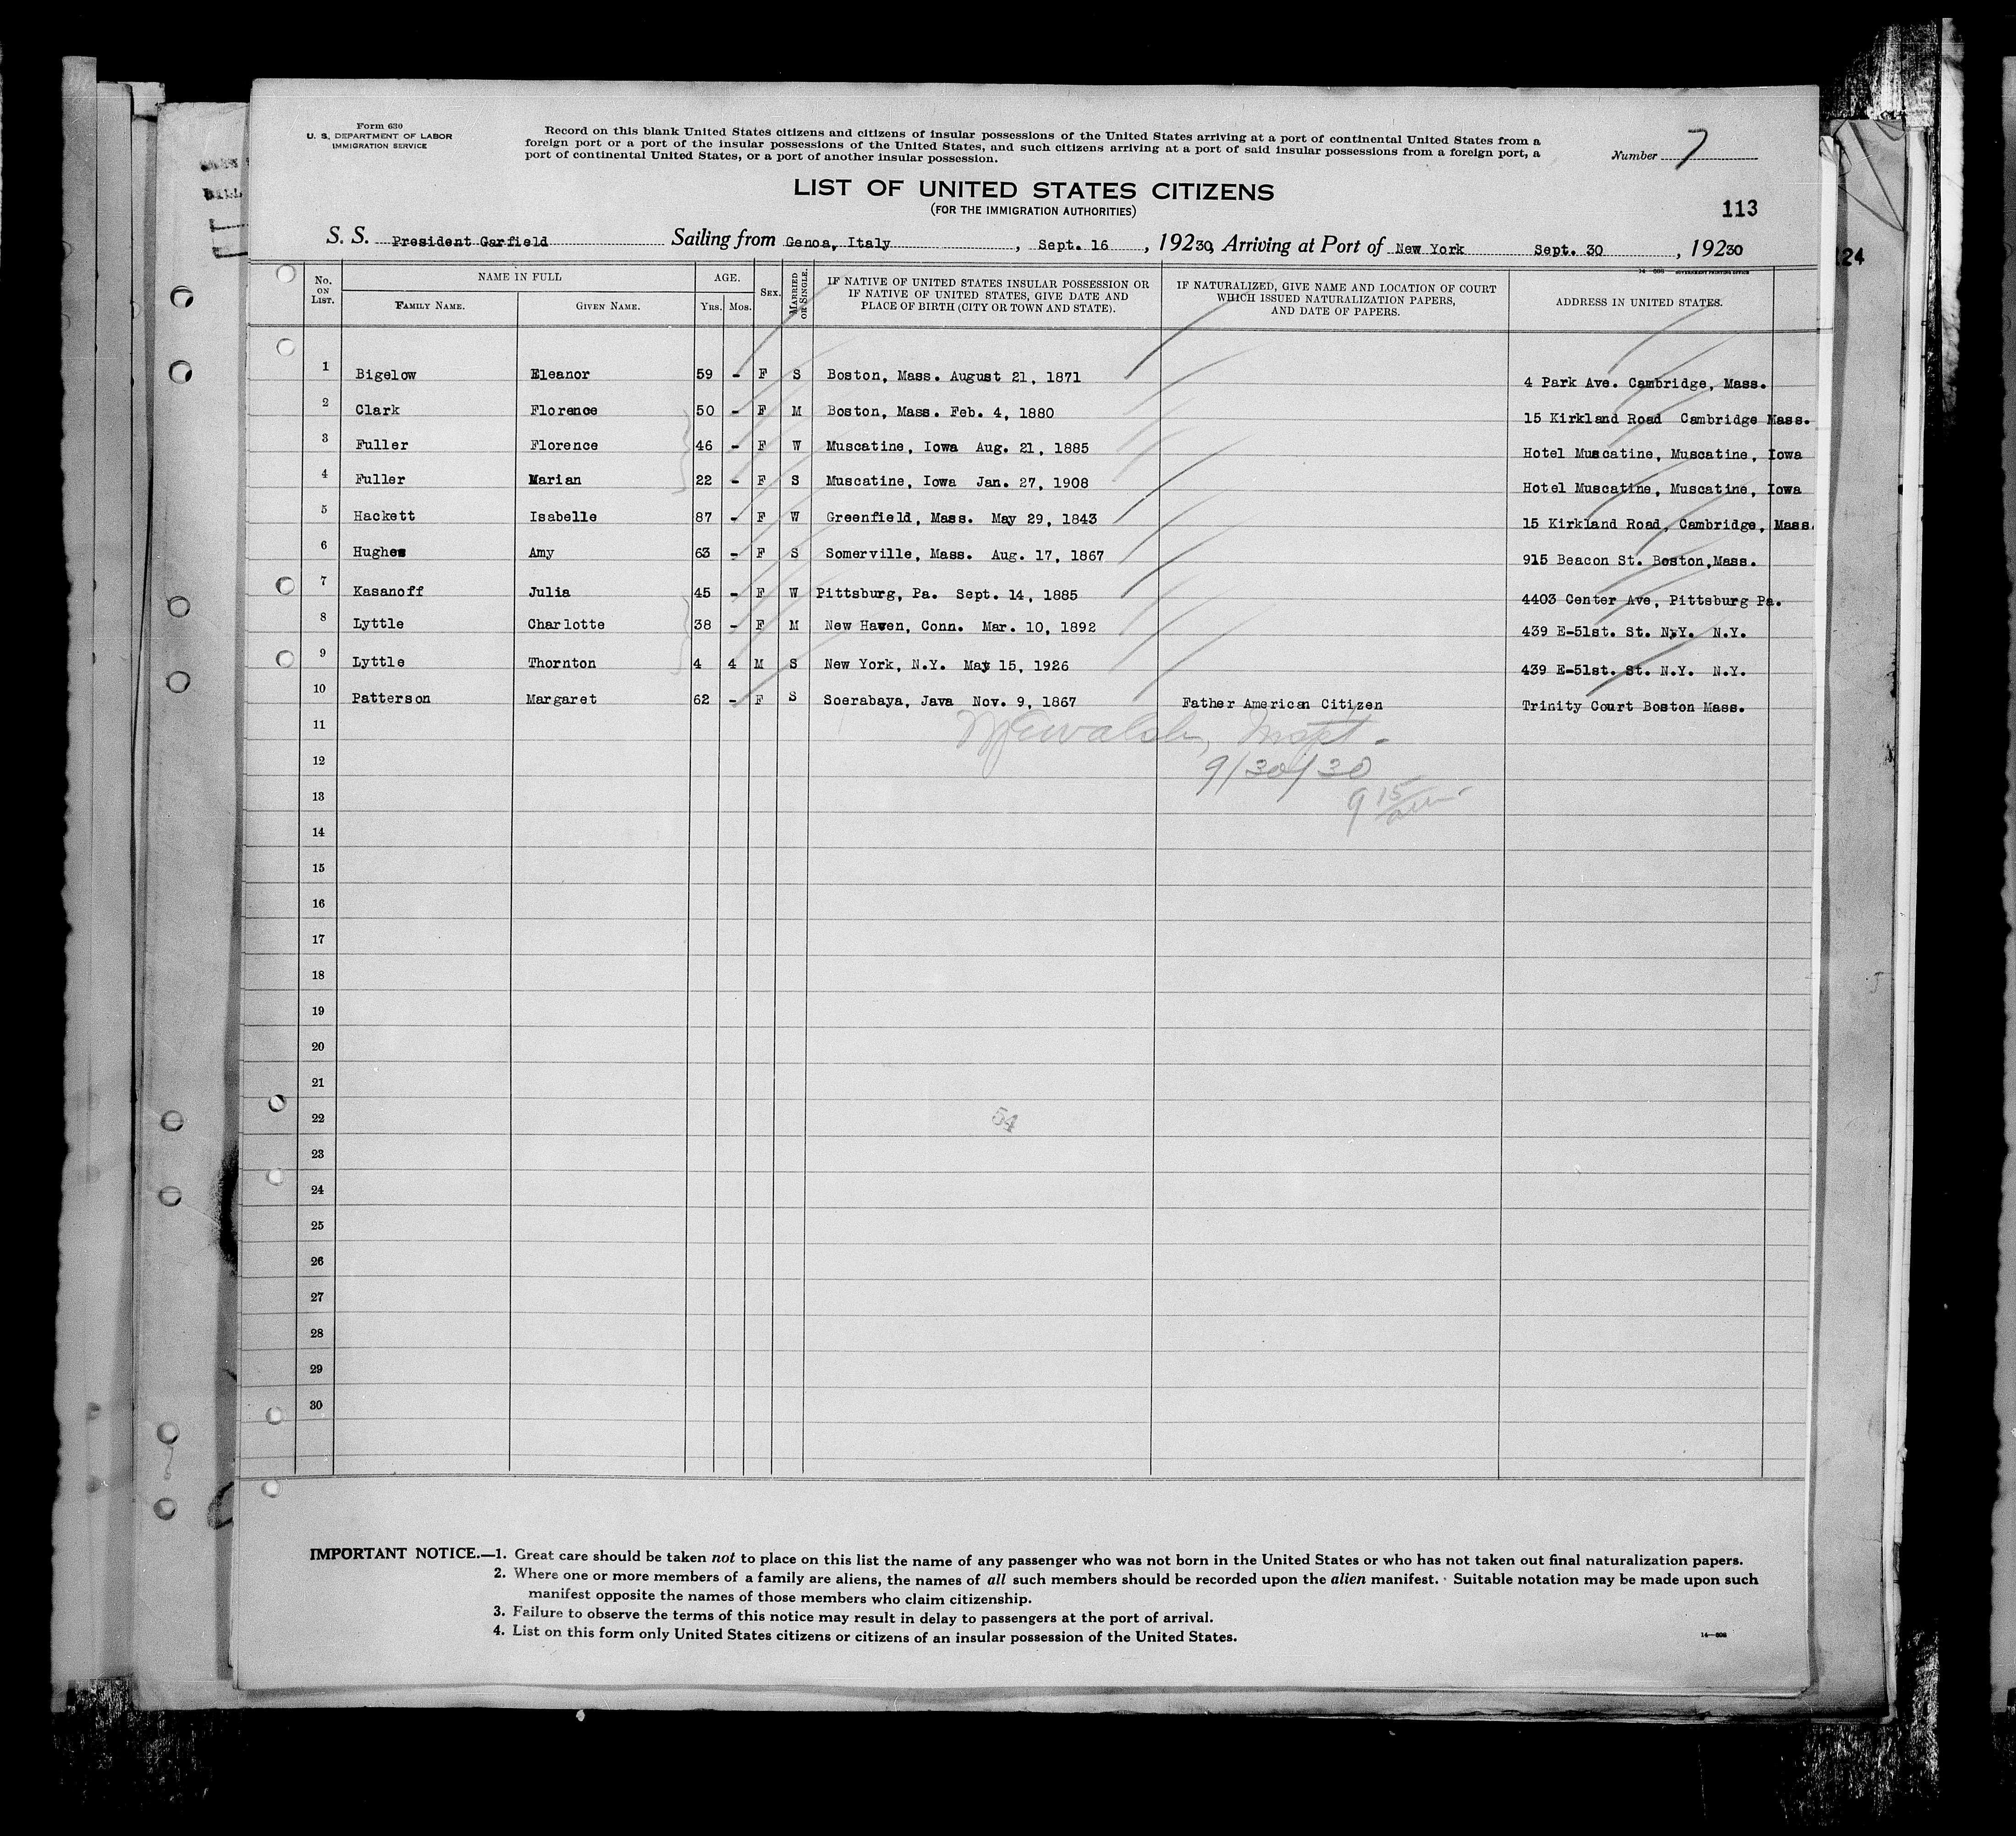 Form 630
U. S. DEPARTMENT OF LABOR
IMMIGRATION SERVICE
Record on this blank United States citizens and citizens of insular possessions of the United States arriving at a port of continental United States from a
foreign port or a port of the insular possessions of the United States, and such citizens arriving at a port of said insular possessions from a foreign port, a
port of continental United States, or a port of another insular possession.
Number 7
LIST OF UNITED STATES CITIZENS
(FOR THE IMMIGRATION AUTHORITIES)
113
S. S. President Garfield Sailing from Genoa, Italy, Sept. 16, 19230, Arriving at Port of New York Sept. 30, 19230
124
No. ON LIST. NAME IN FULL AGE. SEX. MARRIED OR SINGLE. IF NATIVE OF UNITED STATES INSULAR POSSESSION OR IF NATIVE OF UNITED STATES, GIVE DATE AND PLACE OF BIRTH (CITY OR TOWN AND STATE). IF NATURALIZED, GIVE NAME AND LOCATION OF COURT WHICH ISSUED NATURALIZATION PAPERS, AND DATE OF PAPERS. ADDRESS IN UNITED STATES.
FAMILY NAME. GIVEN NAME. YRS. MOS.
1 Bigelow Eleanor 59 - F S Boston, Mass. August 21, 1871 4 Park Ave. Cambridge, Mass.
2 Clark Florence 50 - F M Boston, Mass. Feb. 4, 1880 15 Kirkland Road Cambridge Mass.
3 Fuller Florence 46 - F W Muscatine, Iowa Aug. 21, 1885 Hotel Muscatine, Muscatine, Iowa
4 Fuller Marian 22 - F S Muscatine, Iowa Jan. 27, 1908 Hotel Muscatine, Muscatine, Iowa
5 Hackett Isabelle 87 - F W Greenfield, Mass. May 29, 1843 15 Kirkland Road, Cambridge, Mass.
6 Hughes Amy 63 - F S Somerville, Mass. Aug. 17, 1867 915 Beacon St. Boston,Mass.
7 Kasanoff Julia 45 - F W Pittsburg, Pa. Sept. 14, 1885 4403 Center Ave, Pittsburg Pa.
8 Lyttle Charlotte 38 - F M New Haven, Conn. Mar. 10, 1892 439 E-51st. St. N.Y. N.Y.
9 Lyttle Thornton 4 4 M S New York, N.Y. May 15, 1926 439 E-51st. St. N.Y. N.Y.
10 Patterson Margaret 62 - F S Soerabaya, Java Nov. 9, 1867 Father American Citizen Trinity Court Boston Mass.
11 Inspt.
12 9/30/30
13 9 15
14
15
16
17
18
19
20
21
22 54
23
24
25
26
27
28
29
30
IMPORTANT NOTICE.—1. Great care should be taken not to place on this list the name of any passenger who was not born in the United States or who has not taken out final naturalization papers.
2. Where one or more members of a family are aliens, the names of all such members should be recorded upon the alien manifest. Suitable notation may be made upon such
manifest opposite the names of those members who claim citizenship.
3. Failure to observe the terms of this notice may result in delay to passengers at the port of arrival.
4. List on this form only United States citizens or citizens of an insular possession of the United States.